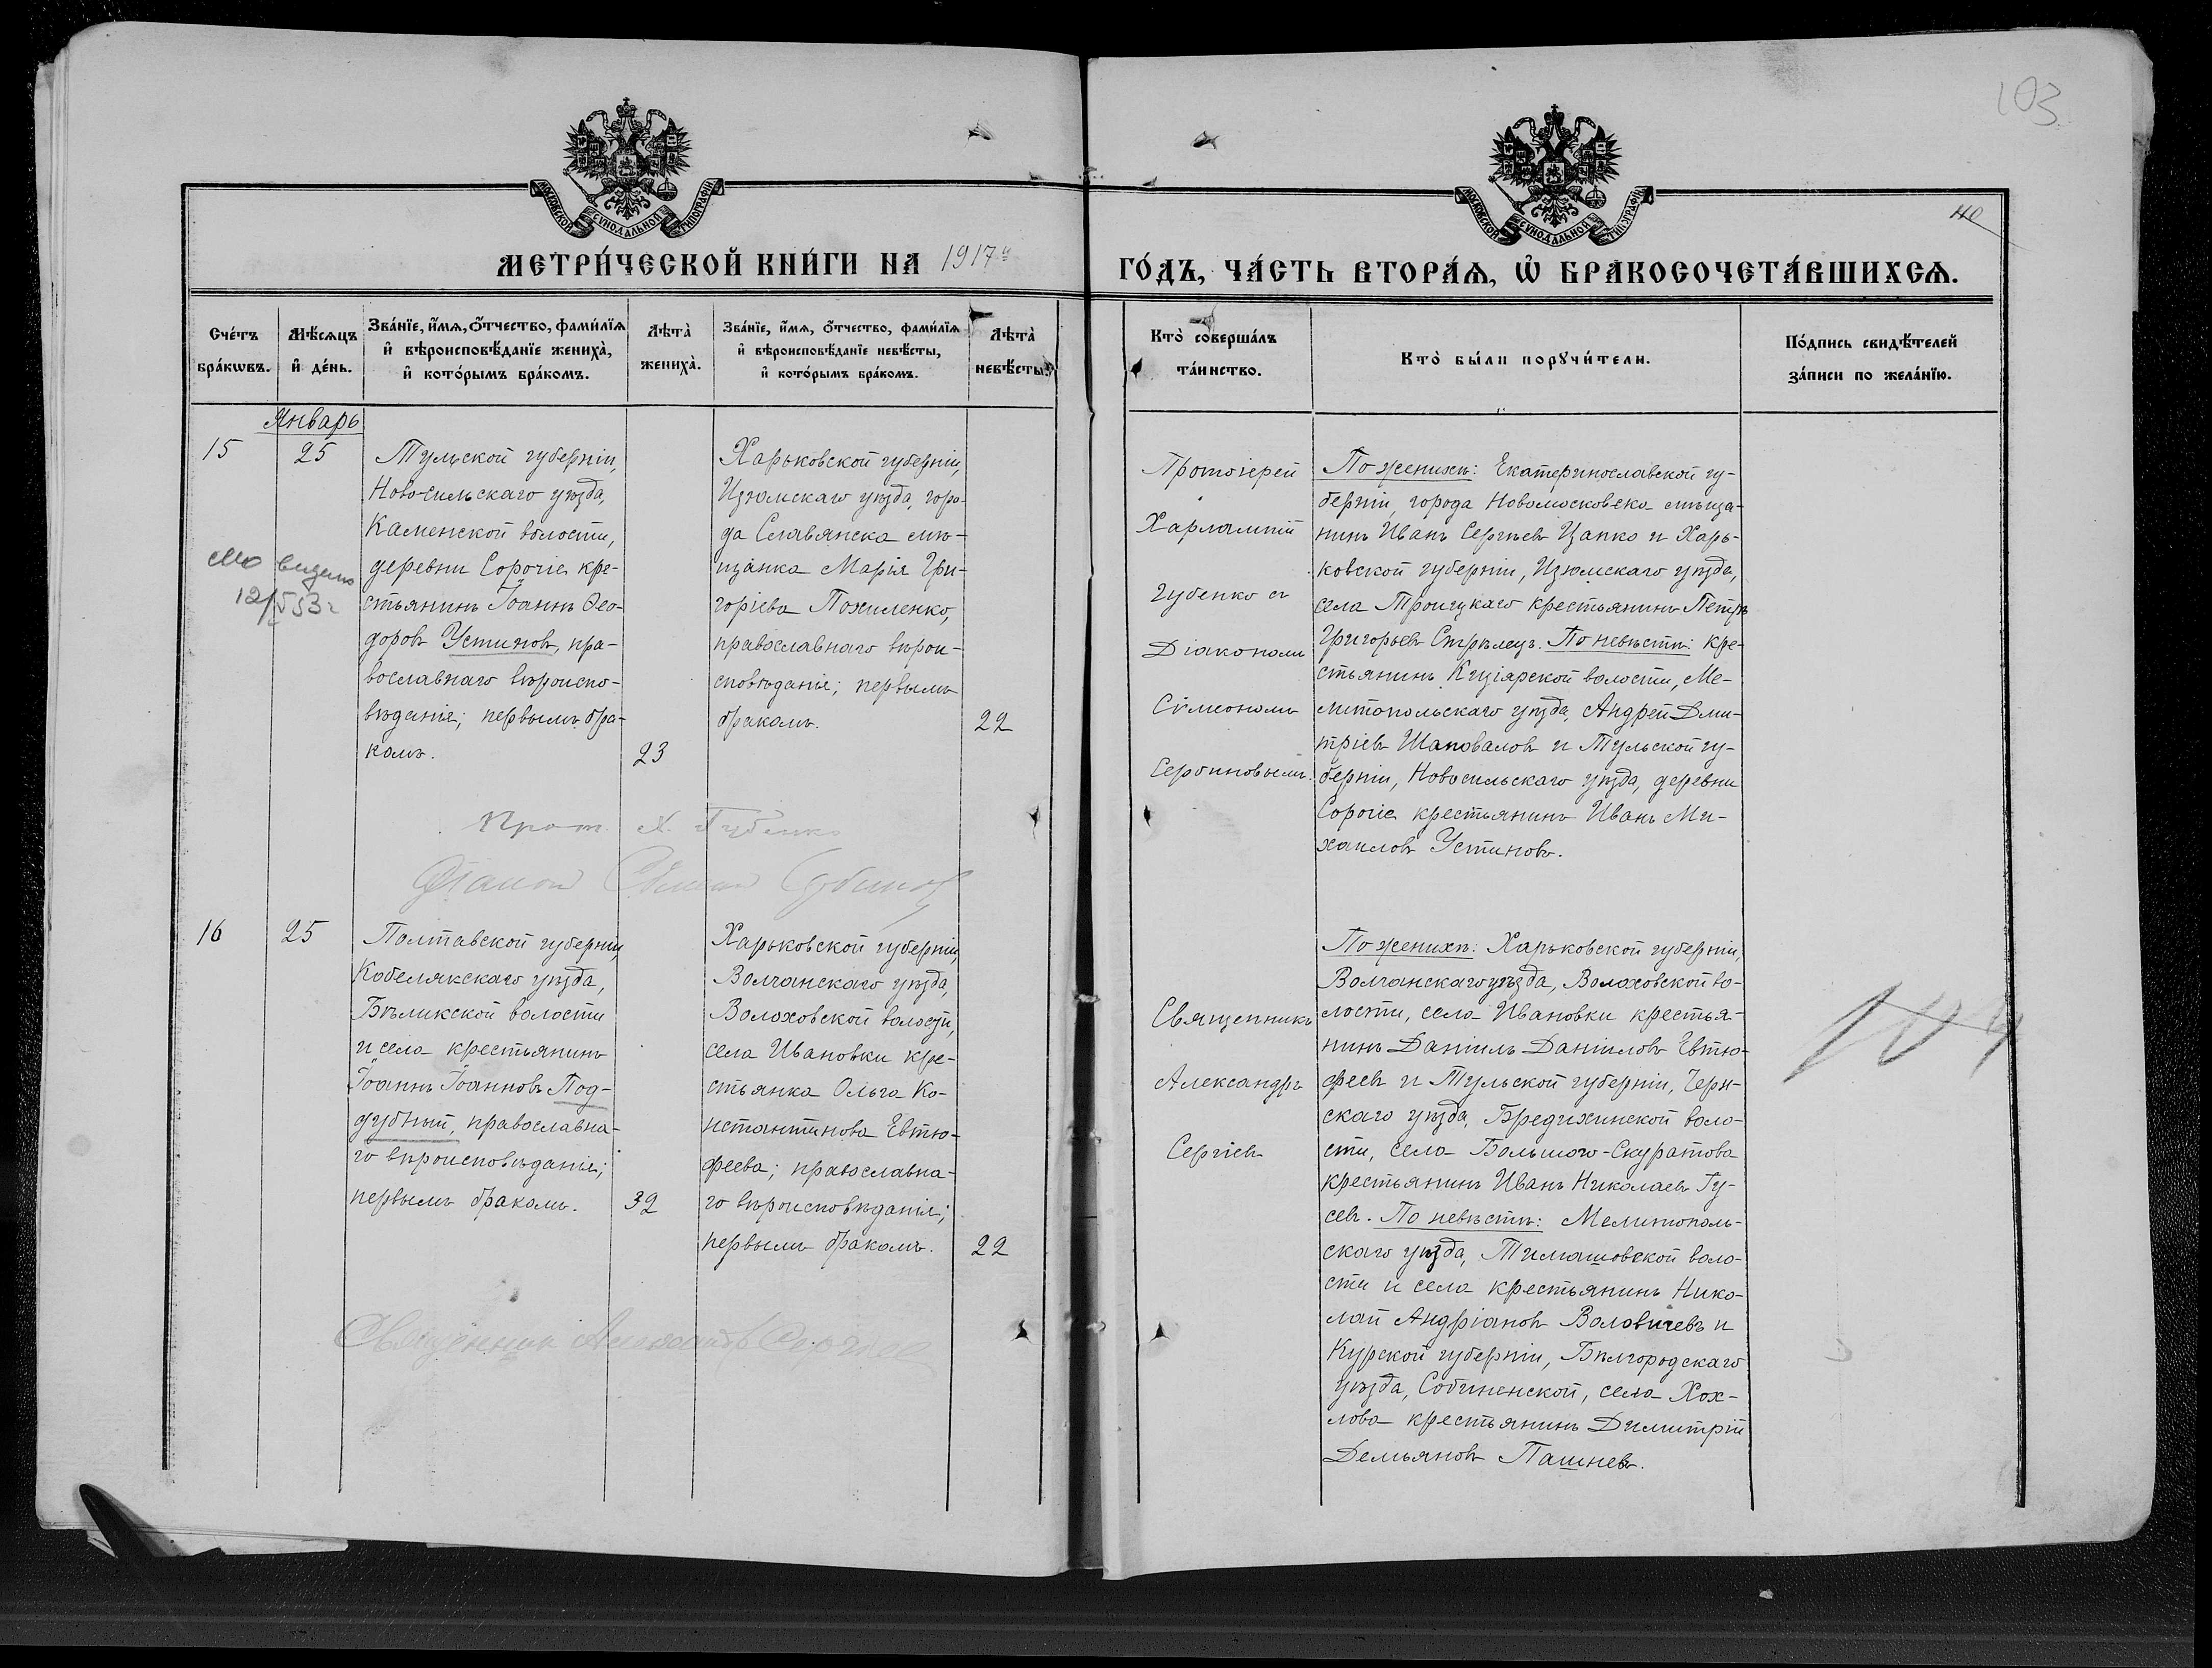 103
МОСКОВСКОЙ СѴНОДАЛЬНОЙ ТИПОГРАФІИ
МОСКОВСКОЙ СѴНОДАЛЬНОЙ ТИПОГРАФІИ
МЕТРИ́ЧЕСКОЙ КНИ́ГИ НА 1917й
ГО́ДЪ, ЧА́СТЬ ВТОРА́Ѧ, Ѡ БРАКОСОЧЕТА́ВШИХСѦ.
Сче́тъ
бра́кѡвъ.
Мѣ́сѧцъ
и҆ де́нь.
Зва́нїе, и҆́мѧ, ѻ҆́тчество, фами́лїѧ
и҆ вѣроисповѣ́данїе жениха̀,
и҆ кото́рымъ бра́комъ.
Лѣта̀
жениха̀.
Зва́нїе, и҆́мѧ, ѻ҆́тчество, фами́лїѧ
и҆ вѣроисповѣ́данїе невѣ́сты,
и҆ кото́рымъ бра́комъ.
Лѣта̀
невѣ́сты.
Кто̀ соверша́лъ
та́инство.
Кто̀ бы́ли порꙋчи́тели.
По́дпись свидѣ́телей
за́писи по жела́нїю.
Январь
15
25
Тульской губерніи,
Новосильскаго уѣзда,
Каменской волости,
деревни Сорочіе кре-
стьянинъ Іоаннъ Ѳео-
доровъ Устиновъ, пра-
вославнаго вѣроиспо-
вѣданія; первымъ бра-
комъ.
23
Харьковской губерніи,
Изюмскаго уѣзда, горо-
да Славянска мѣ-
щанка Марія Гри-
горіева Похиленко,
православнаго вѣрои-
сповѣданія; первымъ
бракомъ.
22
Протоіерей
Харлампій
Губенко съ
Діакономъ
Сѵмеономъ
Сербиновымъ.
По женихѣ: Екатеринославской гу-
берніи, города Новомосковска мѣща-
нинъ Иванъ Сергѣевъ Цапко и Харь-
ковской губерніи, Изюмскаго уѣзда,
села Троицкаго крестьянинъ Петръ
Григорьевъ Стрѣлецъ. По невѣстѣ: кре-
стьянинъ Кизіярской волости, Ме-
литопольскаго уѣзда, Андрей Дми-
тріевъ Шаповаловъ и Тульской гу-
берніи, Новосильскаго уѣзда, деревни
Сорочіе крестьянинъ Иванъ Ми-
хаиловъ Устиновъ.
Прот. Х. Губенко
Діаконъ Сѵмеонъ Сербиновъ
16
25
Полтавской губерніи,
Кобелякскаго уѣзда,
Бѣликской волости
и села крестьянинъ
Іоаннъ Іоанновъ Под-
дубный, православна-
го вѣроисповѣданія;
первымъ бракомъ.
32
Харьковской губерніи,
Волчанскаго уѣзда,
Волоховской волости,
села Ивановки кре-
стьянка Ольга Ко-
нстантинова Евтю-
феева; православна-
го вѣроисповѣданія;
первымъ бракомъ.
22
Священникъ
Александръ
Сергіевъ
По женихѣ: Харьковской губерніи,
Волчанскаго уѣзда, Волоховской во-
лости, села Ивановки крестья-
нинъ Даніилъ Даніиловъ Евтю-
феевъ и Тульской губерніи, Черн-
скаго уѣзда, Бредихинской воло-
сти, села Большого-Скуратова
крестьянинъ Иванъ Николаевъ Гу-
севъ. По невѣстѣ: Мелитополь-
скаго уѣзда, Тимашовской воло-
сти и села крестьянинъ Нико-
лай Андріановъ Воловичевъ и
Курской губерніи, Бѣлгородскаго
уѣзда, Собиненской, села Хох-
лова крестьянинъ Димитрій
Демьяновъ Пашневъ.
Священникъ Александръ Сергіевъ